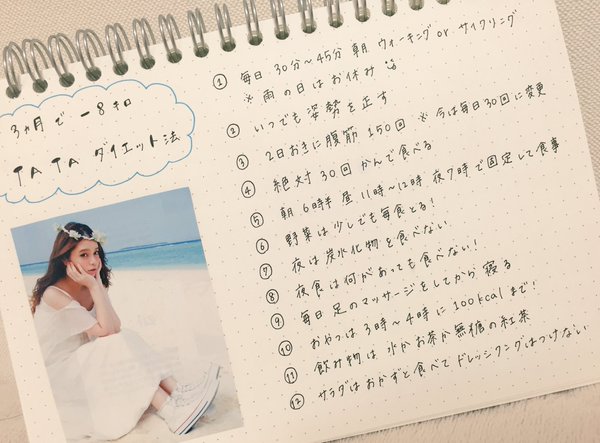 3ヵ月で-8キロ
TATAダイエット法
① 毎日 30分〜45分 朝 ウォーキング or サイクリング
※ 雨の日はお休み
② いつでも姿勢を正す
③ 2日おきに腹筋 150回 ※ 今は毎日30回に変更
④ 絶対 30回かんで食べる
⑤ 朝 6時半 昼 11時〜12時 夜7時で固定して食事
⑥ 野菜は少しでも毎食とる!
⑦ 夜は炭水化物を食べない
⑧ 夜食は何があっても食べない!
⑨ 毎日足のマッサージをしてから寝る
⑩ おやつは3時〜4時に100kcalまで!
⑪ 飲み物は水かお茶か無糖の紅茶
⑫ サラダはおかずと食べてドレッシングはつけない